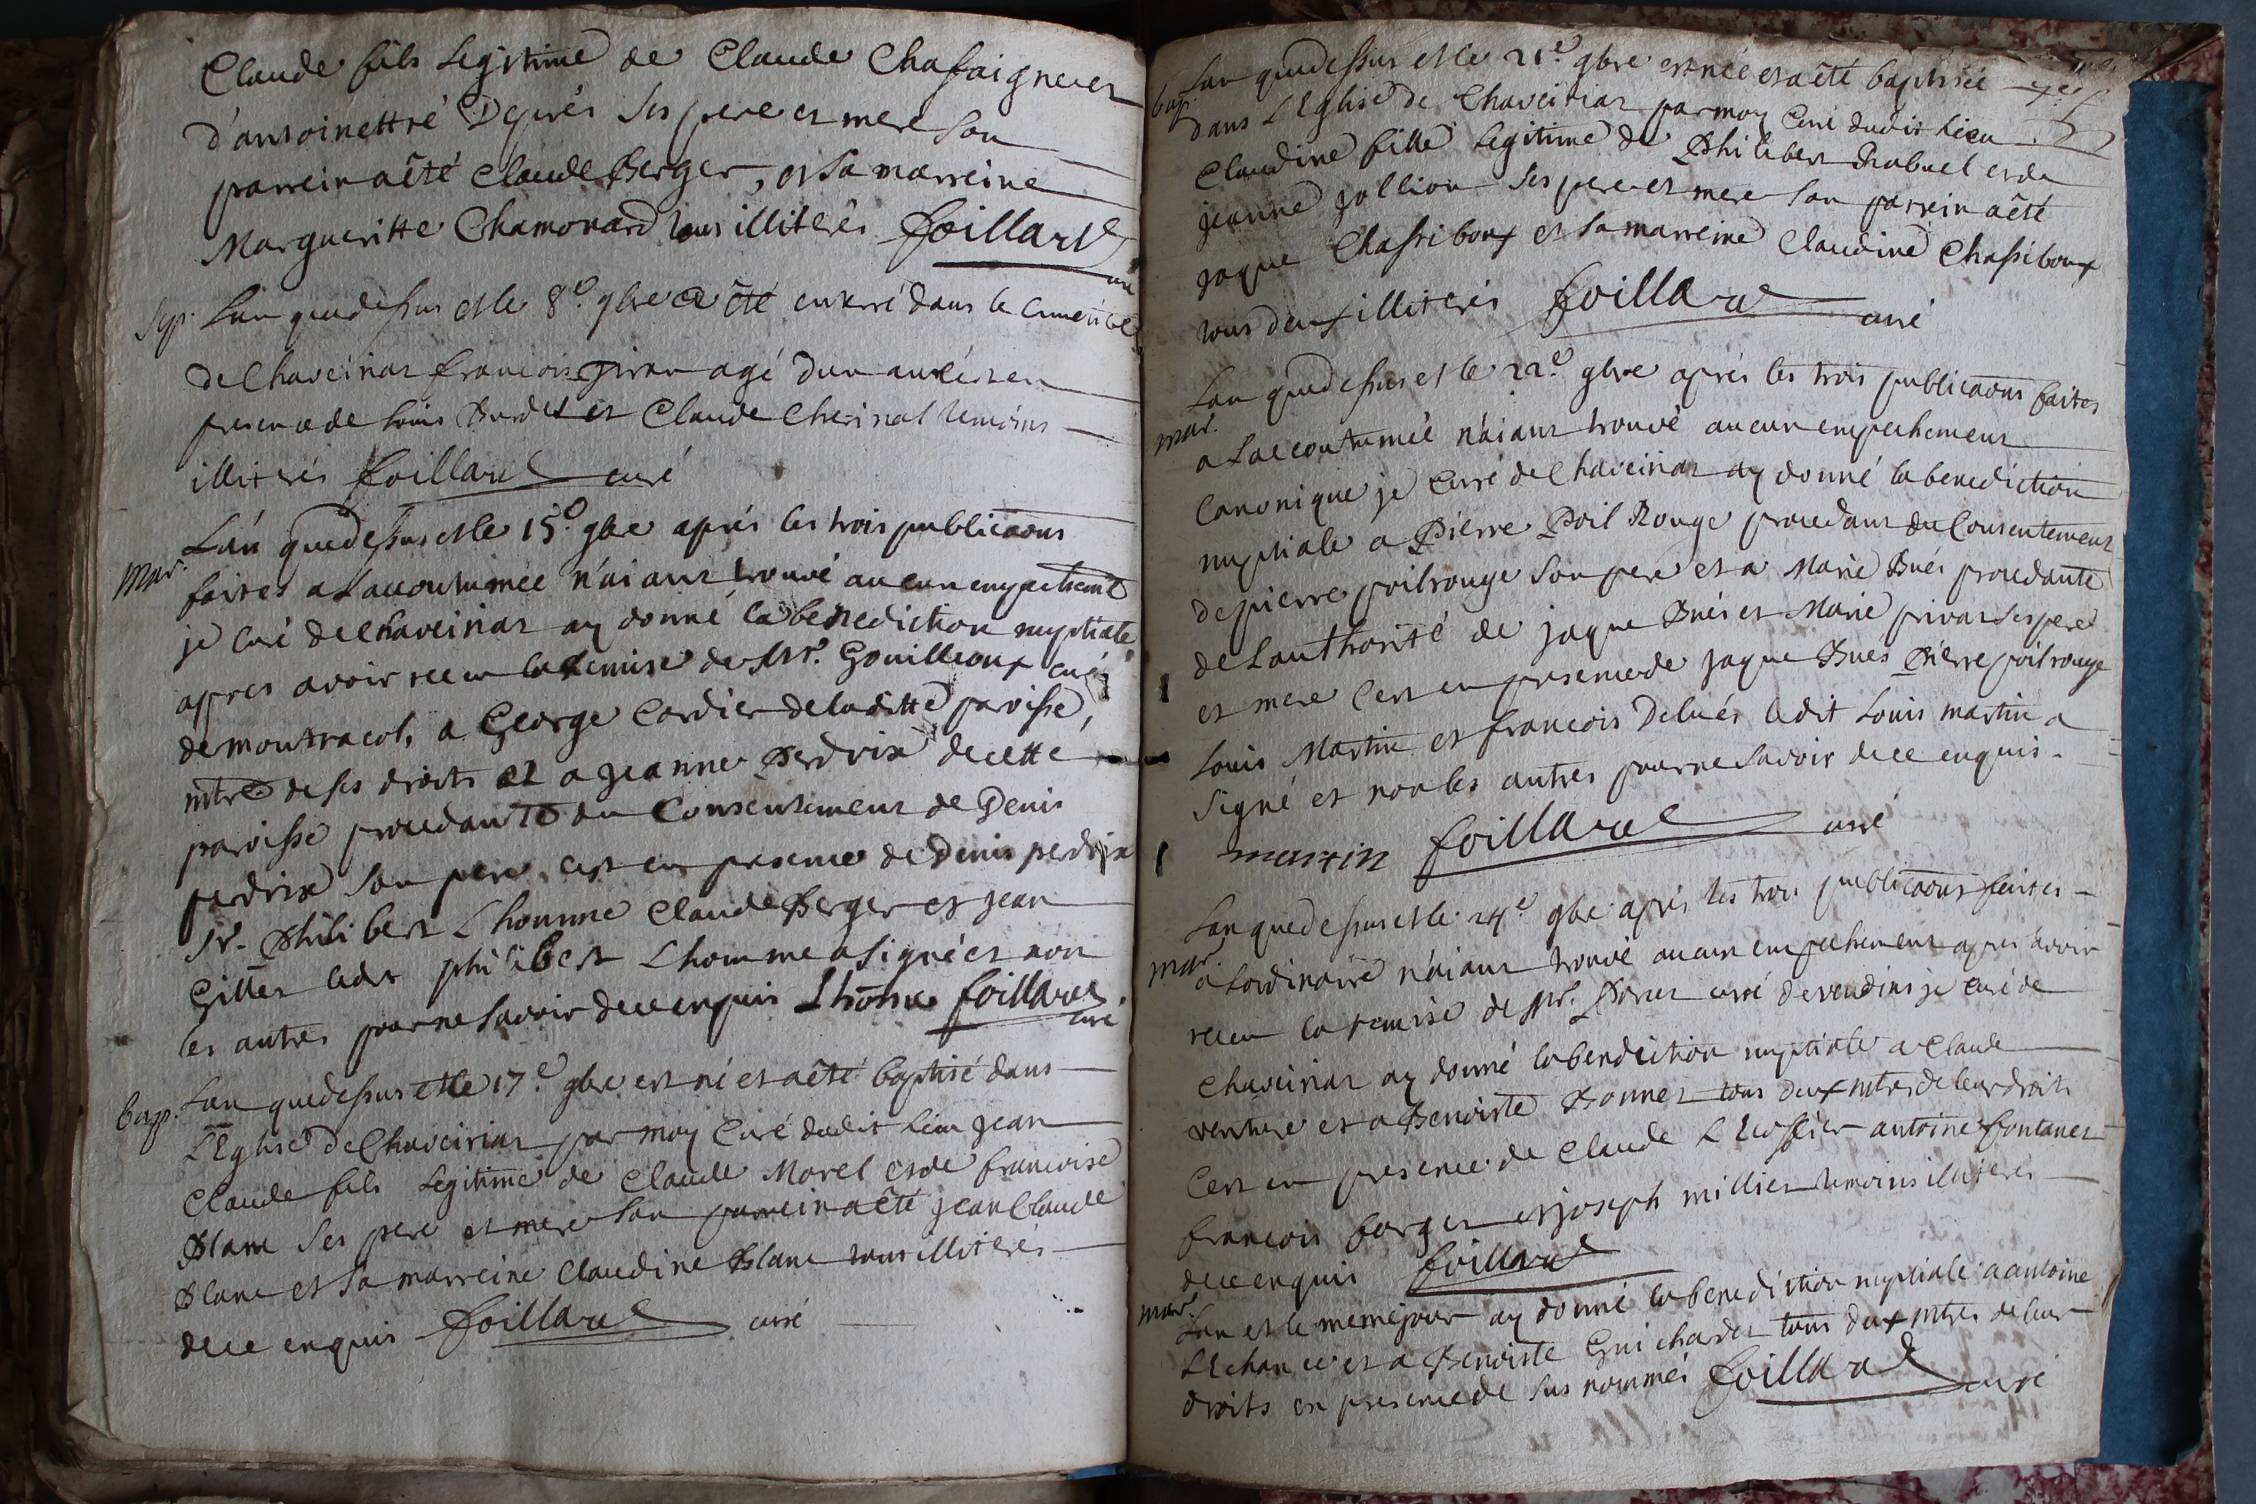 Claude fils Legitime de Claude Chafaigne et
d'antoinettre Depres Ses pere et mere Son
parrein a êté Claude Berger, et Sa marreine
Margueritte Chamonard tous illiterés foillard
curé
Sep. L'an quedessus et le 8e. 9bre a êté enterré dans le cimetiere
de Chaveiriat francois agé dun an et en
presence de Louis Burdet et Claude Cherinal temoins
illiterés foillard curé
Mar. L'an quedessus et le 15e. 9bre aprés les trois publicaons
faites a Laccoutumée n'aiant trouvé aucun empechemt
je curé de Chaveiriat ay donné la benediction nuptiale
apres avoir receu la remise de Mr. Gouilleoux curé
de montracol, a George Cordier de laditte paroisse,
mtre de ses droits et a jeanne Perdrix de cette
paroisse procedante du Consentement de Denis
perdrix Son pere, c'est en presence de Denis perdrix
Sr. Philibert Lhomme Claude Berger et jean
Gittes ledit philibert Lhomme a Signé et non
les autres pour ne Savoir de ce enquis Lhome foillard.
curé
bap. L'an quedessus et le 17e. 9bre est né et a êté baptisé dans
L'Eglise de Chaveiriat par moy Curé dudit Lieu jean
Claude fils Legitime de Claude Morel et de francoise
Blanc Ses pere et mere Son parrein a êté jean Claude
Blanc et Sa marreine Claudine Blanc tous illiterés
de ce enquis foillard curé
bap. L'an quedessus et le 21e. 9bre est née et a êté baptisée
dans L'Eglise de Chaveiriat par moy Curé dudit Lieu
Claudine fille Legitime de Philibert Rabuel et de
jeanne jollion Ses pere et mere Son parrein a êté
jaque Chassiboux et Sa marreine Claudine Chassiboux
tous deux illiterés foillard curé
mar. L'an quedessus et le 22e. 9bre aprés les trois publicaons faites
a Laccoutumée n'aiant trouvé aucun empechement
Canonique je Curé de Chaveiriat ay donné la benediction
nuptiale a Pierre Poil Rouge procedant du Consentement
de pierre poilrouge Son pere et a Marie Bués procedante
de Lauthorité de jaque Bués et Marie privat Ses pere
et mere C'est en presence de jaque Bués Pierre poilrouge
Louis Martin et francois Delués ledit Louis martin a
Signé et non les autres pour ne Savoir de ce enquis.
martin foillard curé
mar. L'an quedessus et le 24e. 9bre aprés les trois publicaons faites
a Lordinaire n'aiant trouvé aucun empechement apres avoir
receu la remise de Mr. curé de vendins je Curé de
Chaveiriat ay donné la bendiction nuptiale a Claude
venture et a Benoiste Bonnet tous deux mtres de leur droits
C'est en presence de Claude antoine fontanet
francois forget et joseph millier temoins illiterés
de ce enquis foillard
mar. L'an et le meme jour ay donné la benediction nuptiale a antoine
Lechance et a Benoiste Guichardet tous deux mtres de leur
droits en presence de Sus nommés foillard curé